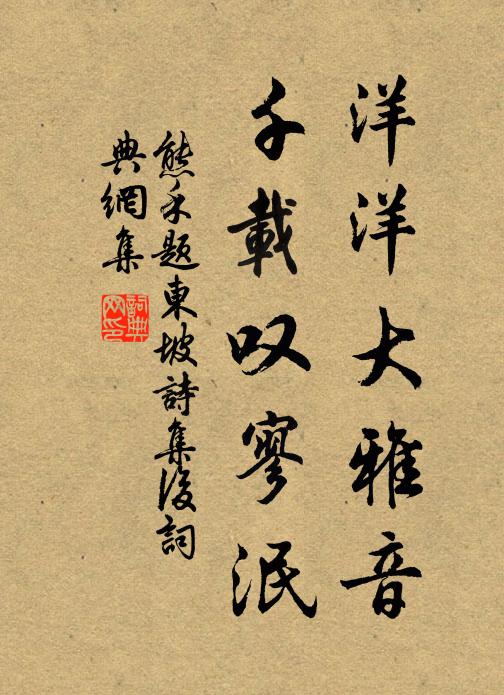 洋洋大雅音
千載叹寥泯
熊禾題東坡詩集後詞
典網集
詞典网印